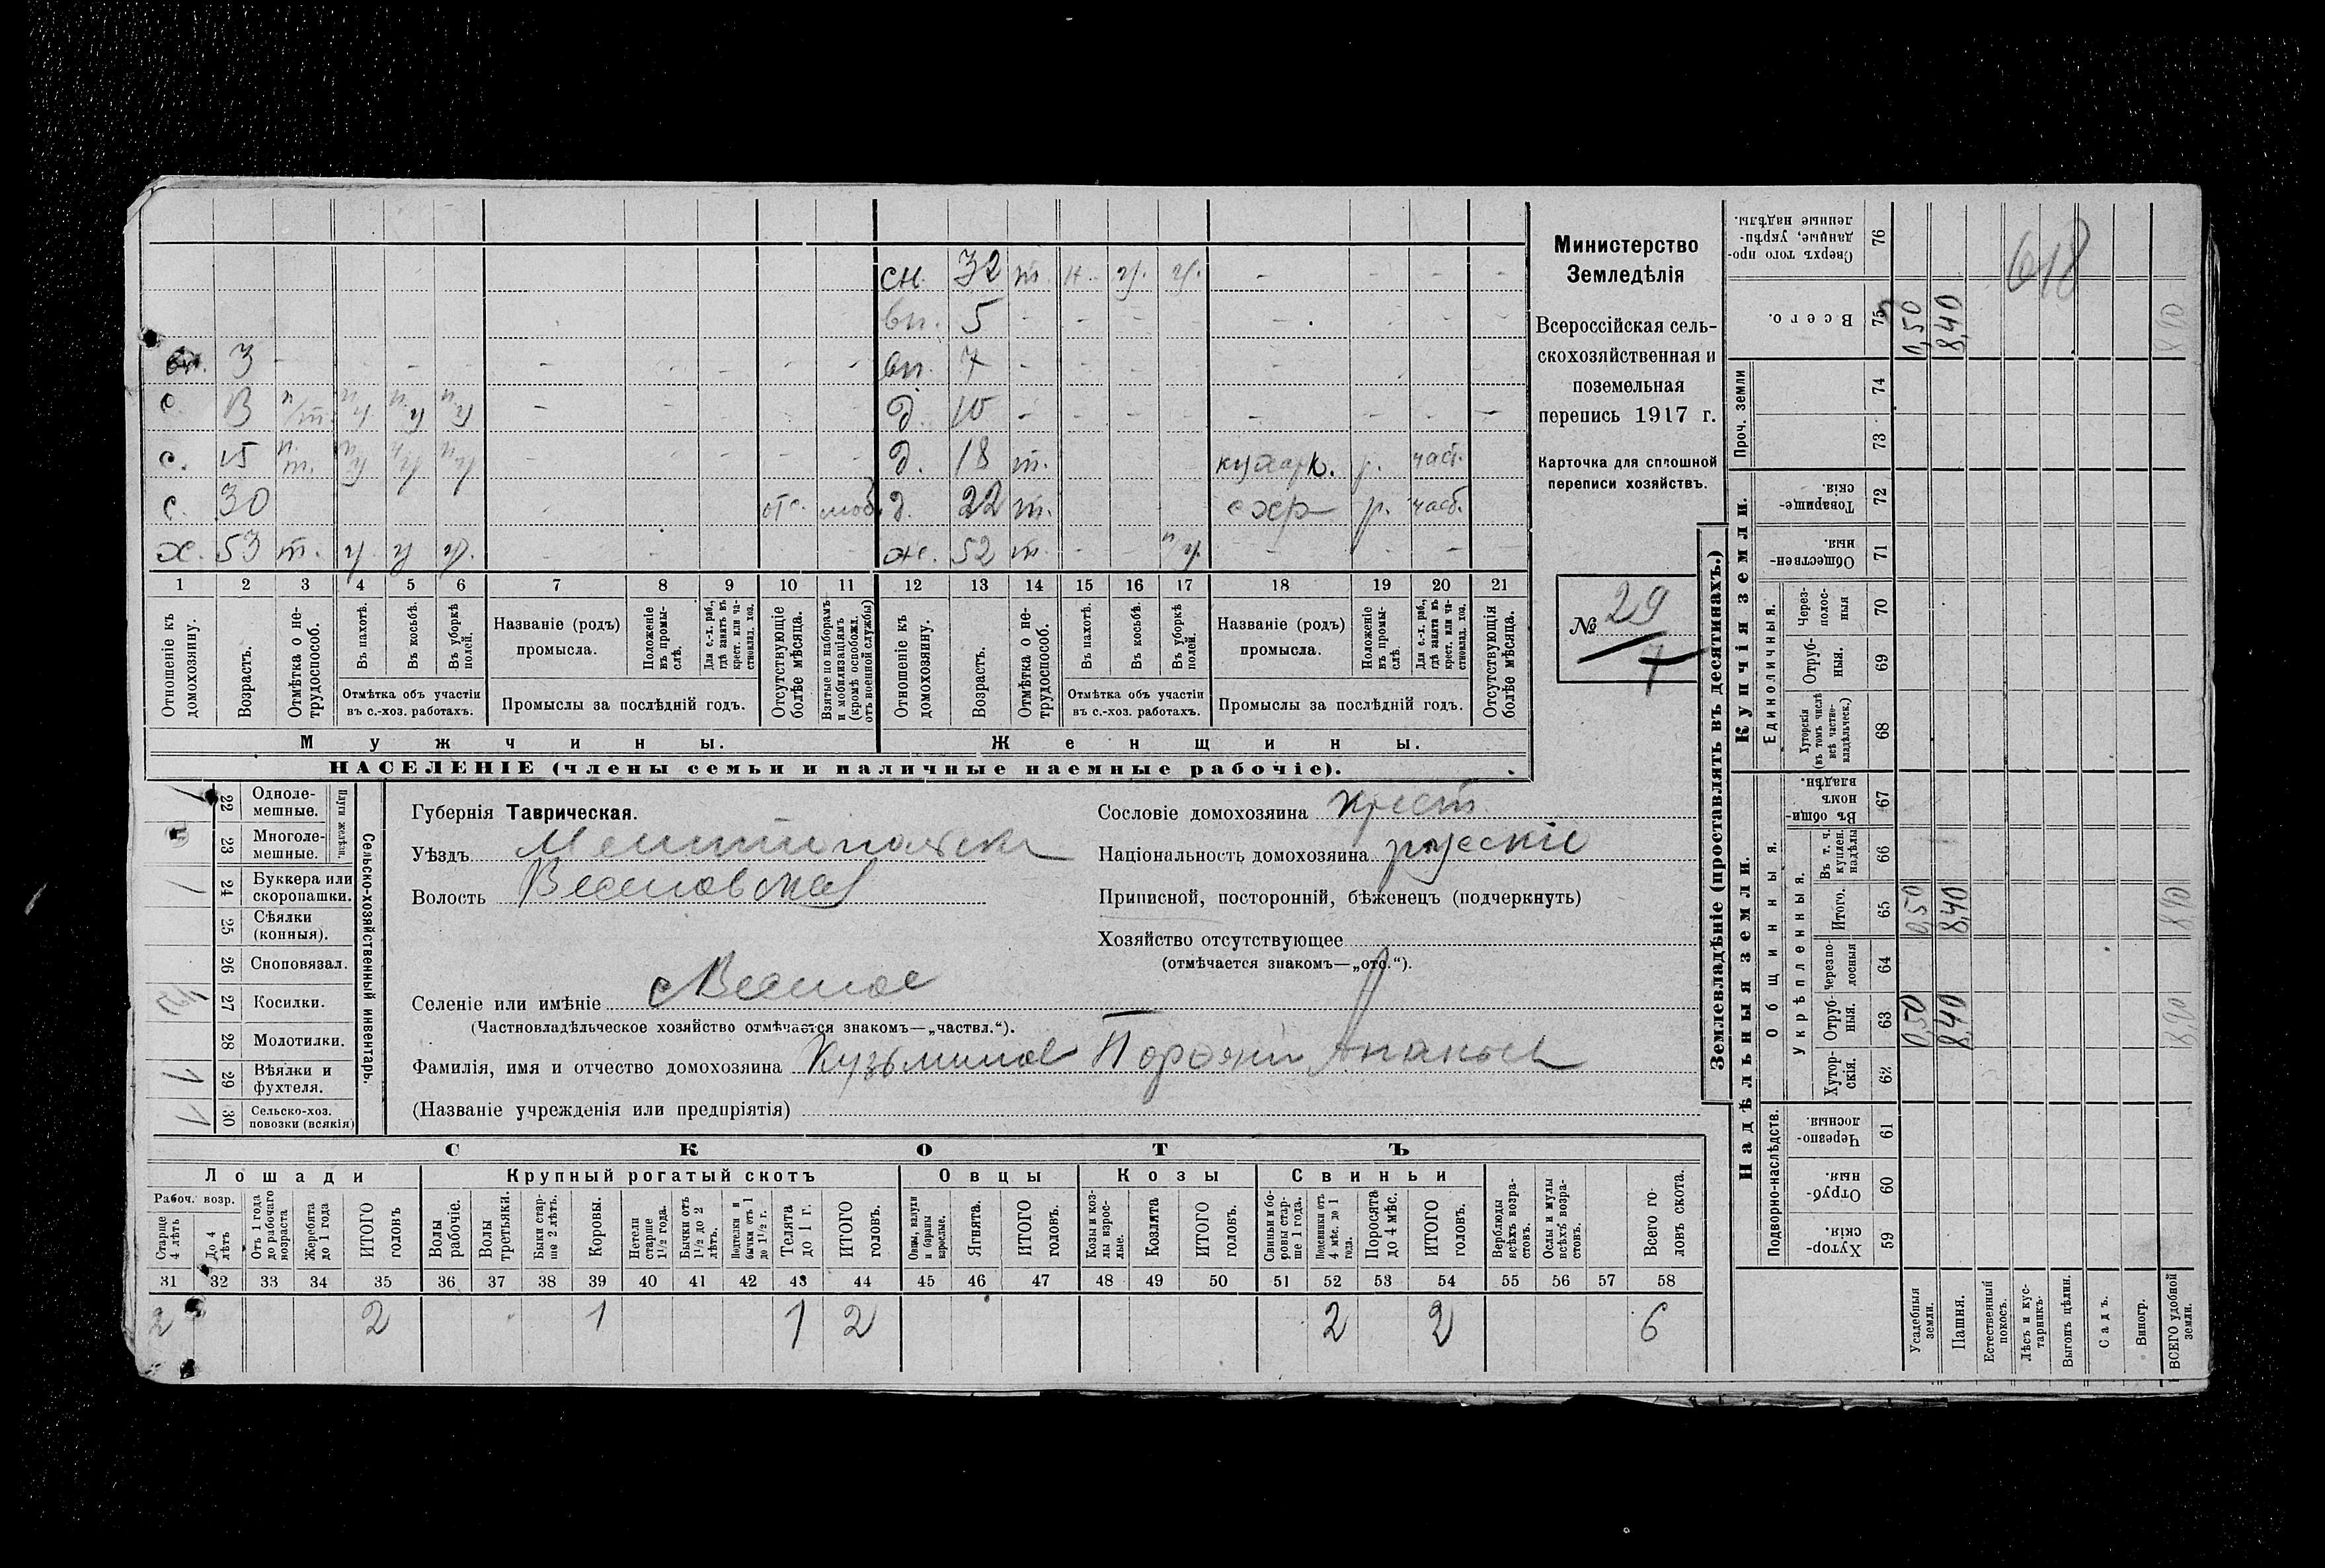 сн. 32 т. н. ч. ч. - - - -
вн. 5 - - - - - - -
вн. 3 - - - - - - - вн. 7 - - - - - - -
с. 13 - - д. 10 - - - - - - - -
с. 15 - - - - - д. 18 т. кухарк. р. част.
с. 30 отс. моб. д. 22 т. схр р. част.
х. 53 т. ч ч ч. - - - - - ж. 52 т. - - - - - -
1 2 3 4 5 6 7 8 9 10 11 12 13 14 15 16 17 18 19 20 21
Отношеніе къ домохозяину.
Возрастъ.
Отмѣтка о нетрудоспособ.
Въ пахотѣ.
Въ косьбѣ.
Въ уборкѣ полей.
Отмѣтка объ участіи
въ с.-хоз. работахъ.
Названіе (родъ)
промысла.
Положеніе въ промыслѣ.
Для с.-х. раб., гдѣ занятъ въ крест. или частновлад. хоз.
Промыслы за послѣдній годъ.
Отсутствующіе болѣе мѣсяца.
Взятые по наборамъ и мобилизаціямъ (кромѣ освобожд. отъ военной службы)
Отношеніе къ домохозяину.
Возрастъ.
Отмѣтка о нетрудоспособ.
Въ пахотѣ.
Въ косьбѣ.
Въ уборкѣ полей.
Отмѣтка объ участіи
въ с.-хоз. работахъ.
Названіе (родъ)
промысла.
Положеніе въ промыслѣ.
Для с.-х. раб., гдѣ занята въ крест. или частновлад. хоз.
Промыслы за послѣдній годъ.
Отсутствующія болѣе мѣсяца.
Мужчины. Женщины.
НАСЕЛЕНІЕ (члены семьи и наличные наемные рабочіе).
Министерство
Земледѣлія
Всероссійская сель-
скохозяйственная и
поземельная
перепись 1917 г.
Карточка для сплошной
переписи хозяйствъ.
№ 29
7
22 Одноле-
мешные.
23 Многоле-
мешные.
Плуги желѣзн.
24 Буккера или
скоропашки.
25 Сѣялки
(конныя).
26 Сноповязал.
27 Косилки.
28 Молотилки.
29 Вѣялки и
фухтеля.
30 Сельско-хоз.
повозки (всякія)
Сельско-хозяйственный инвентарь.
Губернія Таврическая.
Уѣздъ
Волость Веселовская
Селеніе или имѣніе с Веселое
(Частновладѣльческое хозяйство отмѣчается знакомъ—„частвл.“).
Фамилія, имя и отчество домохозяина Кузьминов
(Названіе учрежденія или предпріятія)
Сословіе домохозяина крест.
Національность домохозяина русскіе
Приписной, посторонній, бѣженецъ (подчеркнуть)
Хозяйство отсутствующее
(отмѣчается знакомъ—„отс.“).
СКОТЪ
Лошади Крупный рогатый скотъ Овцы Козы Свиньи
Рабоч. возр.
Старше 4 лѣтъ
До 4 лѣтъ
Отъ 1 года до рабочаго возраста
Жеребята до 1 года
ИТОГО головъ
Волы рабочіе.
Волы третьяки.
Быки старше 2 лѣтъ.
Коровы.
Нетели старше 1½ года.
Бычки отъ 1½ до 2 лѣтъ.
Подтелки и бычки отъ 1 до 1½ г.
Телята до 1 г.
ИТОГО головъ.
Овцы, валухи и бараны взрослые.
Ягнята.
ИТОГО головъ.
Козы и козлы взрослые.
Козлята
ИТОГО головъ.
Свиньи и боровы старше 1 года.
Подсвинки отъ 4 мѣс. до 1 года.
Поросята до 4 мѣс.
ИТОГО головъ.
Верблюды всѣхъ возрастовъ.
Ослы и мулы всѣхъ возрастовъ.
Всего головъ скота.
31 32 33 34 35 36 37 38 39 40 41 42 43 44 45 46 47 48 49 50 51 52 53 54 55 56 57 58
2 2 1 1 2 2 2 6
Землевладѣніе (проставлять въ десятинахъ.)
Надѣльныя земли. Купчія земли.
Подворно-наслѣдств.
Общинныя.
Укрѣпленныя.
Единоличныя.
Проч. земли
Хуторскія 59
Отрубныя. 60
Черезполосныя. 61
Хуторскія. 62
Отрубныя. 63
Черезполосныя 64
Итого. 65
Въ т. ч. куплен. надѣлы 66
Въ общинномъ владѣн. 67
Хуторскія (въ томъ числѣ всѣ частновладѣльческ.) 68
Отрубныя. 69
Черезполосныя 70
Общественныя. 71
Товарищескія. 72
73
74
Всего. 75
Сверхъ того проданные, укрѣпленные надѣлы. 76
Усадебныя земли. 0,50 0,50 0,50
Пашня. 8,40 8,40 8,40
Естественный покосъ.
Лѣсъ и кустарникъ.
Выгонъ цѣлин.
Садъ.
Виногр.
ВСЕГО удобной земли. 8,90 8,90 8,90
618